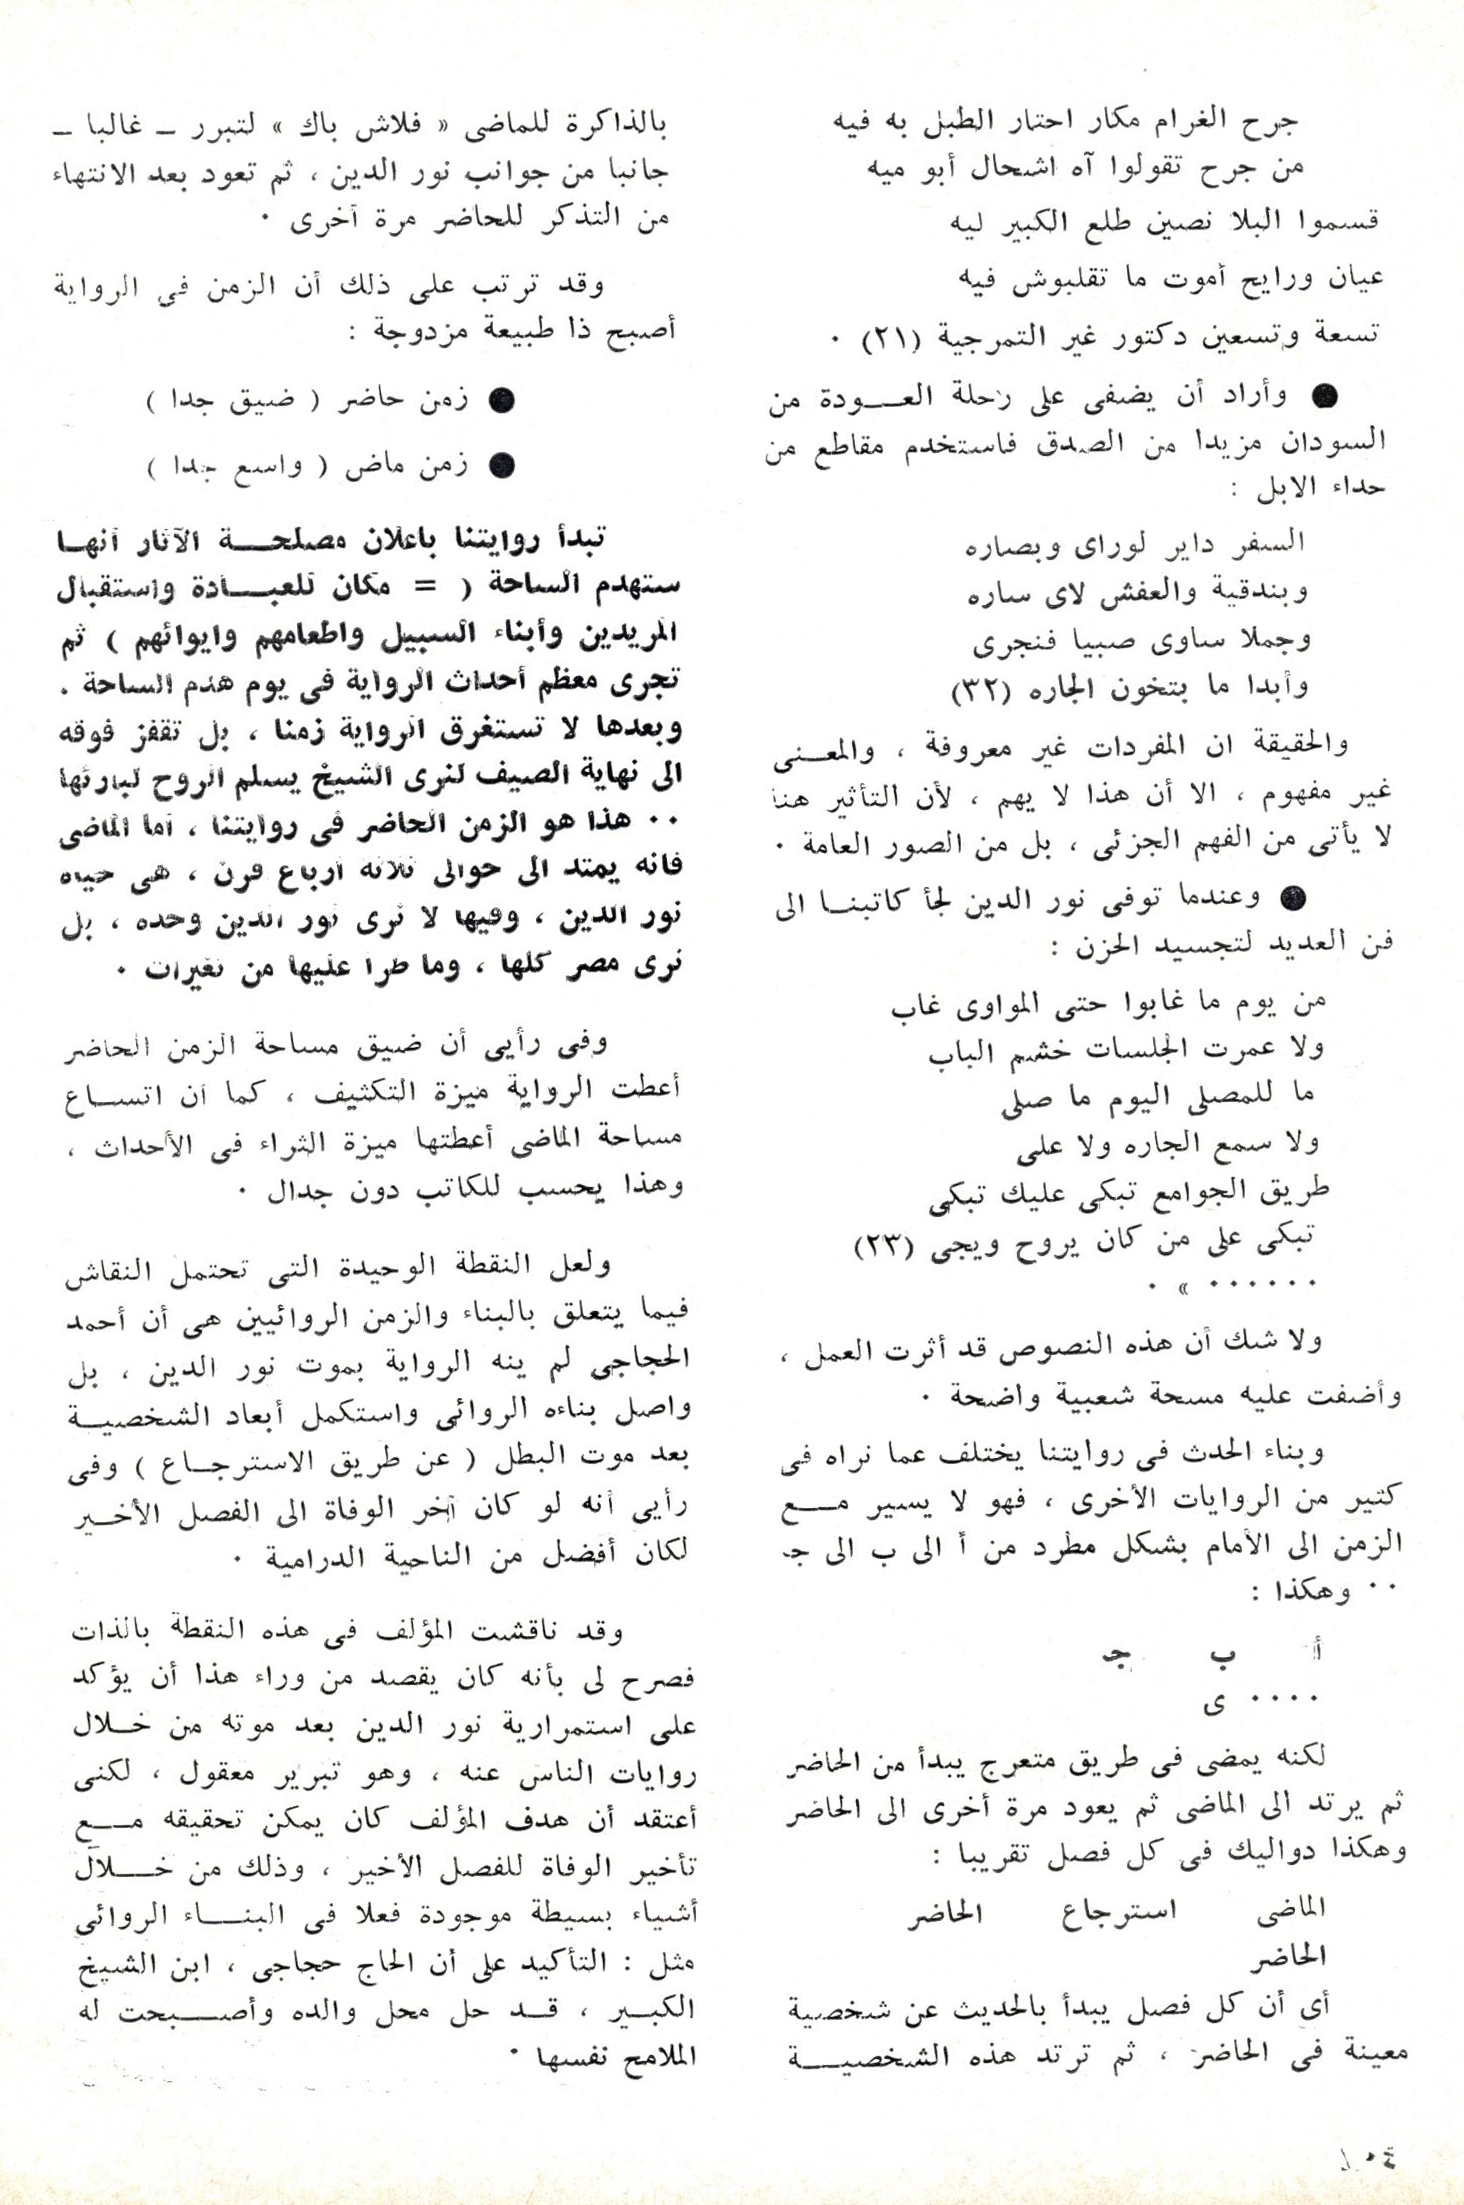 جرح الغرام مكار احتار الطبل به فيه
من جرح تقولوا آه اشحال أبو ميه
قسموا البلا نصين طلع الكبير ليه
عيان ورايح أموت ما تقلبوش فيه
تسعة وتسعين دكتور غير التمرجية (٢١) ٠
● وأراد أن يضفى على رحلة العـــودة من
السودان مزيدا من الصدق فاستخدم مقاطع من
حداء الابل :
السفر داير لوراى وبصاره
وبندقية والعفش لاى ساره
وجملا ساوى صبيا فنجرى
وأبدا ما بتخون الجاره (٣٢)
والحقيقة ان المفردات غير معروفة ، والمعـنى
غير مفهوم ، الا أن هذا لا يهم ، لأن التأثير هنا
لا يأتى من الفهم الجزئى ، بل من الصور العامة ٠
● وعندما توفى نور الدين لجأ كاتبنـا الى
فن العديد لتجسيد الحزن :
من يوم ما غابوا حتى المواوى غاب
ولا عمرت الجلسات خشم الباب
ما للمصلى اليوم ما صلى
ولا سمع الجاره ولا على
طريق الجوامع تبكى عليك تبكى
تبكى على من كان يروح ويجى (٢٣)
٠٠٠٠٠٠ » ٠
ولا شك أن هذه النصوص قد أثرت العمل ،
وأضفت عليه مسحة شعبية واضحة ٠
وبناء الحدث فى روايتنا يختلف عما نراه فى
كثير من الروايات الأخرى ، فهو لا يسير مـــع
الزمن الى الأمام بشكل مطرد من أ الى ب الى جـ
٠٠ وهكذا :
أ ب جـ
٠٠٠٠ ى
لكنه يمضى فى طريق متعرج يبدأ من الحاضر
ثم يرتد الى الماضى ثم يعود مرة أخرى الى الحاضر
وهكذا دواليك فى كل فصل تقريبا :
الماضى استرجاع الحاضر
الحاضر
أى أن كل فصل يبدأ بالحديث عن شخصية
معينة فى الحاضر ، ثم ترتد هذه الشخصيـــة
بالذاكرة للماضى « فلاش باك » لتبرر ـ غالبا ـ
جانبا من جوانب نور الدين ، ثم تعود بعد الانتهاء
من التذكر للحاضر مرة أخرى ٠
وقد ترتب على ذلك أن الزمن فى الرواية
أصبح ذا طبيعة مزدوجة :
● زمن حاضر ( ضيق جدا )
● زمن ماض ( واسع جدا )
تبدأ روايتنا باعلان مصلحـــة الآثار أنهـا
ستهدم الساحة ( = مكان للعبـــادة واستقبال
المريدين وأبناء السبيل واطعامهم وايوائهم ) ثم
تجرى معظم أحداث الرواية فى يوم هدم الساحة .
وبعدها لا تستغرق الرواية زمنا ، بل تقفز فوقه
الى نهاية الصيف لنرى الشيخ يسلم الروح لبارئها
٠٠ هذا هو الزمن الحاضر فى روايتنا ، أما الماضى
فانه يمتد الى حوالى ثلاثة أرباع قرن ، هى حياة
نور الدين ، وفيها لا نرى نور الدين وحده ، بل
نرى مصر كلها ، وما طرأ عليها من تغيرات ٠
وفى رأيى أن ضيق مساحة الزمن الحاضر
أعطت الرواية ميزة التكثيف ، كما أن اتســاع
مساحة الماضى أعطتها ميزة الثراء فى الأحداث ،
وهذا يحسب للكاتب دون جدال ٠
ولعل النقطة الوحيدة التى تحتمل النقاش
فيما يتعلق بالبناء والزمن الروائيين هى أن أحمد
الحجاجى لم ينه الرواية بموت نور الدين ، بل
واصل بناءه الروائى واستكمل أبعاد الشخصيـة
بعد موت البطل ( عن طريق الاسترجـاع ) وفى
رأيى أنه لو كان آخر الوفاة الى الفصل الأخـير
لكان أفضل من الناحية الدرامية ٠
وقد ناقشت المؤلف فى هذه النقطة بالذات
فصرح لى بأنه كان يقصد من وراء هذا أن يؤكد
على استمرارية نور الدين بعد موته من خــلال
روايات الناس عنه ، وهو تبرير معقول ، لكنى
أعتقد أن هدف المؤلف كان يمكن تحقيقه مـــع
تأخير الوفاة للفصل الأخير ، وذلك من خـــلال
أشياء بسيطة موجودة فعلا فى البنـــاء الروائى
مثل : التأكيد على أن الحاج حجاجى ، ابن الشيخ
الكبـير ، قـد حل محل والده وأصـــبحت له
الملامح نفسها ٠
١٠٤